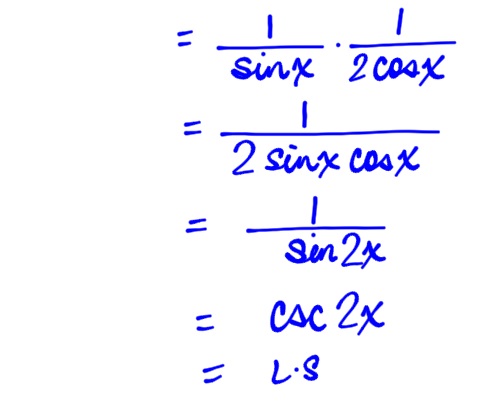 = 1/sinx · 1/2cosx
= 1/2 sinx cosx
= 1/sin2x
= csc 2x
= L.S